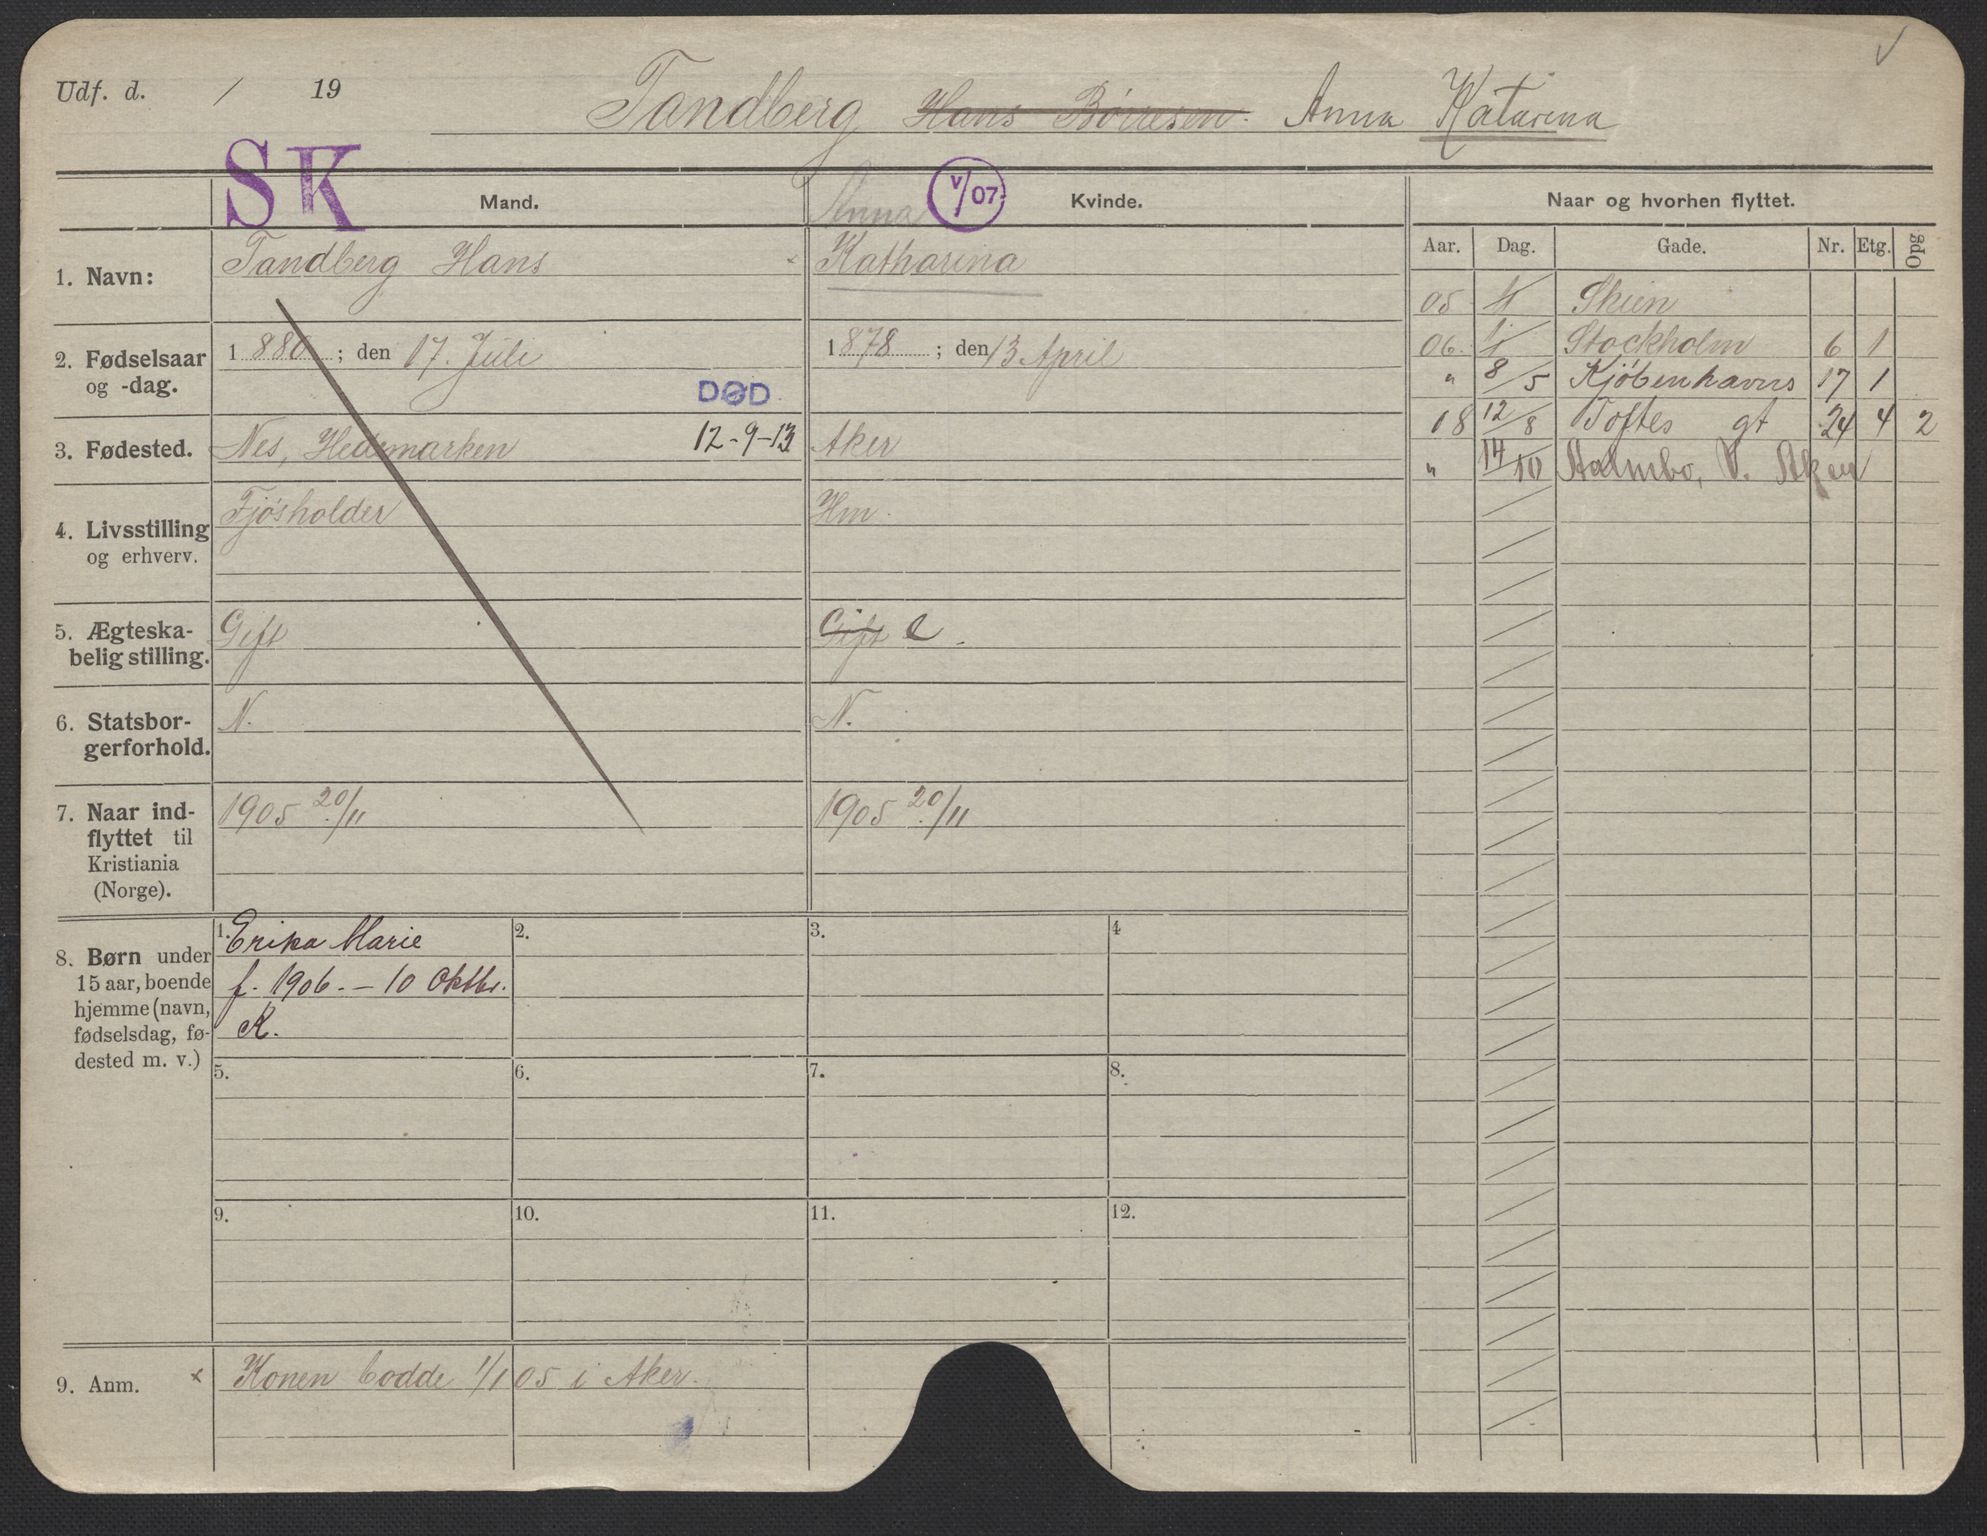 Udf. d. / 19
Tandberg Hans Börresen. Anna Katarina
SK
Mand.
V/07.
Kvinde.
Naar og hvorhen flyttet.
Anna
Aar. Dag. Gade. Nr. Etg. Opg
1. Navn: Tandberg Hans × Katharina
05 1/1 Skien
2. Fødselsaar og -dag. 1880; den 17. Juli 1878; den 13 April
06. 1/1 Stockholm 6 1
" 8/5 Kjöbenhavns 17 1
DØD
18 12/8 Toftes gt 24 4 2
3. Fødested. Nes, Hedemarken 12-9-13 Aker
" 14/10 V. Aker
4. Livsstilling og erhverv. Fjösholder Hm.
5. Ægteskabelig stilling. Gift Gift e.
6. Statsborgerforhold. N. N.
7. Naar indflyttet til Kristiania (Norge). 1905 20/11 1905 20/11
8. Børn under 15 aar, boende hjemme (navn, fødselsdag, fødested m. v.)
1. Erika Marie 2. 3. 4
f. 1906. – 10 Oktbr.
K.
5. 6. 7. 8.
9. 10. 11. 12.
9. Anm. × Konen bodde 1/1 05 i Aker.